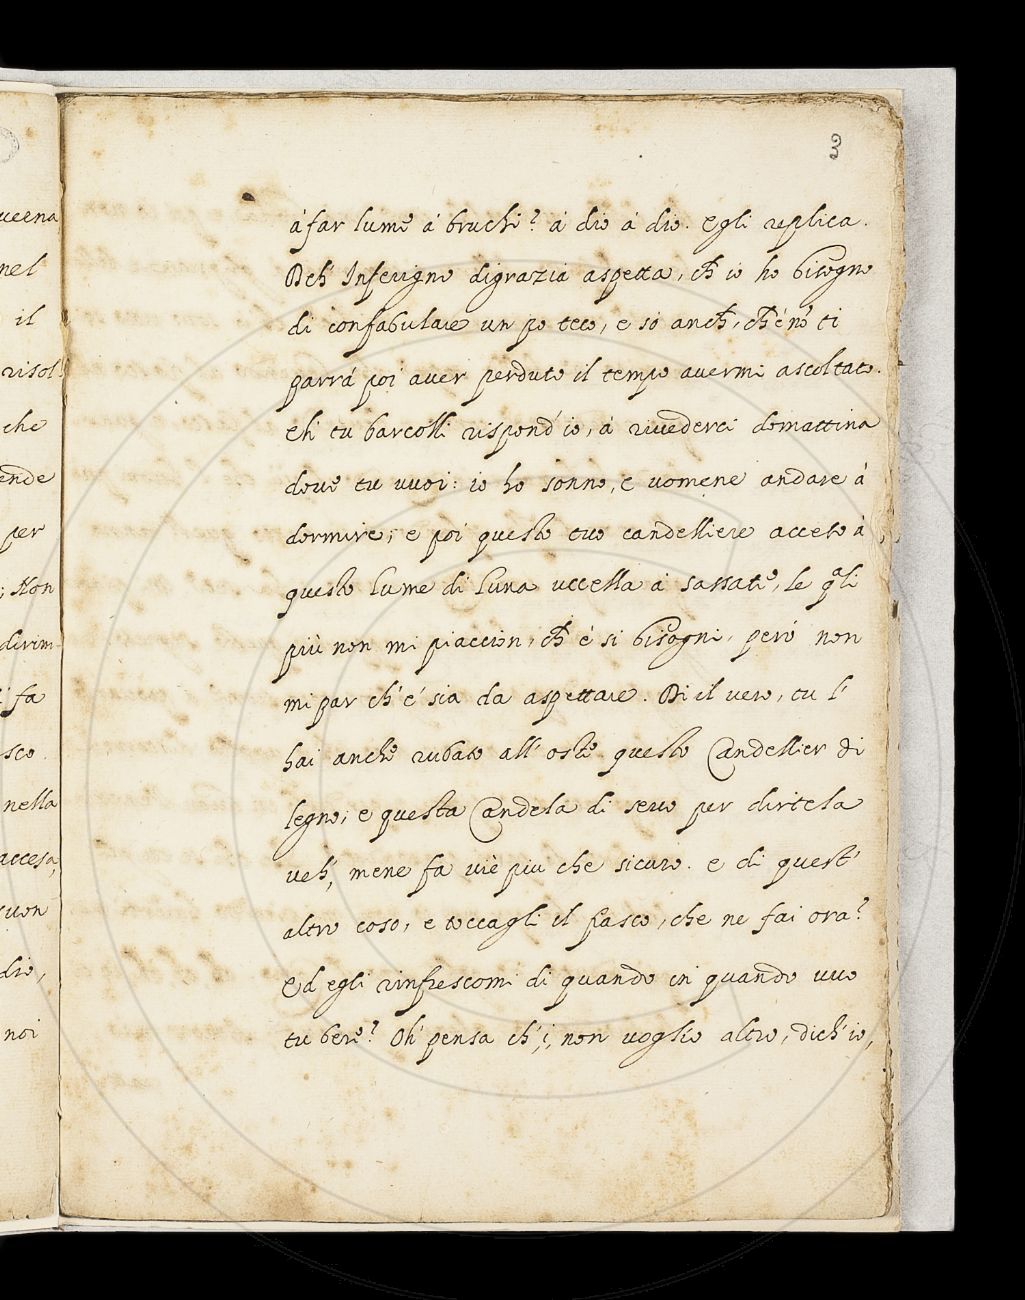 3
á far lume á bruchi? á dio á dio. Egli replica.
Deh' Inferigno digrazia aspetta, ch io ho bisogno
di confabulare un po teco, e só anch, ch é nō ti
parrá poi aver perduto il tempo avermi ascoltato.
eh' tu barcolli rispond' io, á rivederci domattina
dove tu vuoi: io ho sonno, e vomene andare á
dormire; e poi questo tuo candelliere acceso á
questo lume di luna uccella á sassate, le qāli
più non mi piaccion, ch é si bisogni, peró non
mi par ch' é sia da aspettare. Di il vero, tu l'
hai anche rubato all' oste questo Candellier di
legno; e questa Candela di sevo per dirtela
veh', mene fa viè piu che sicuro. e di quest'
altro coso, e toccagli il fiasco, che ne fai ora?
Ed egli rinfrescomi di quando in quando vuo
tu bere? Oh' pensa ch' i, non voglio altro, dich' io,
veena
nel
il
risol:
che
ende
per
; Non
dirim-
fa
sco.
nella
accesa,
suon
dio,
noi